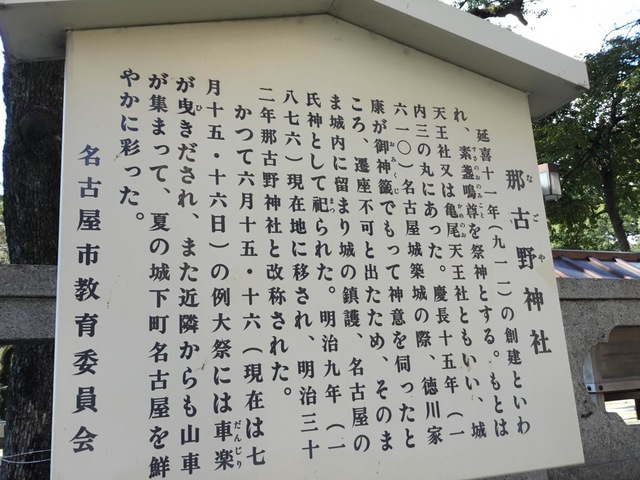 那古野神社
なごや
延喜十一年(九一一)の創建といわ
れ、素盞嗚尊を祭神とする。もとは
すさのおのみこと
天王社又は亀尾天王社ともいい、城
かめのお
内三の丸にあった。慶長十五年(一
六一〇)名古屋城築城の際、徳川家
康が御神籤でもって神意を伺ったと
おみくじ
ころ、遷座不可と出たため、そのま
ま城内に留まり城の鎮護、名古屋の
氏神として祀られた。明治九年(一
まつ
八七六)現在地に移され、明治三十
二年那古野神社と改称された。
かつて六月十五・十六(現在は七
月十五・十六日)の例大祭には車楽
だんじり
が曳きだされ、また近隣からも山車
ひ
が集まって、夏の城下町名古屋を鮮
やかに彩った。
名古屋市教育委員会